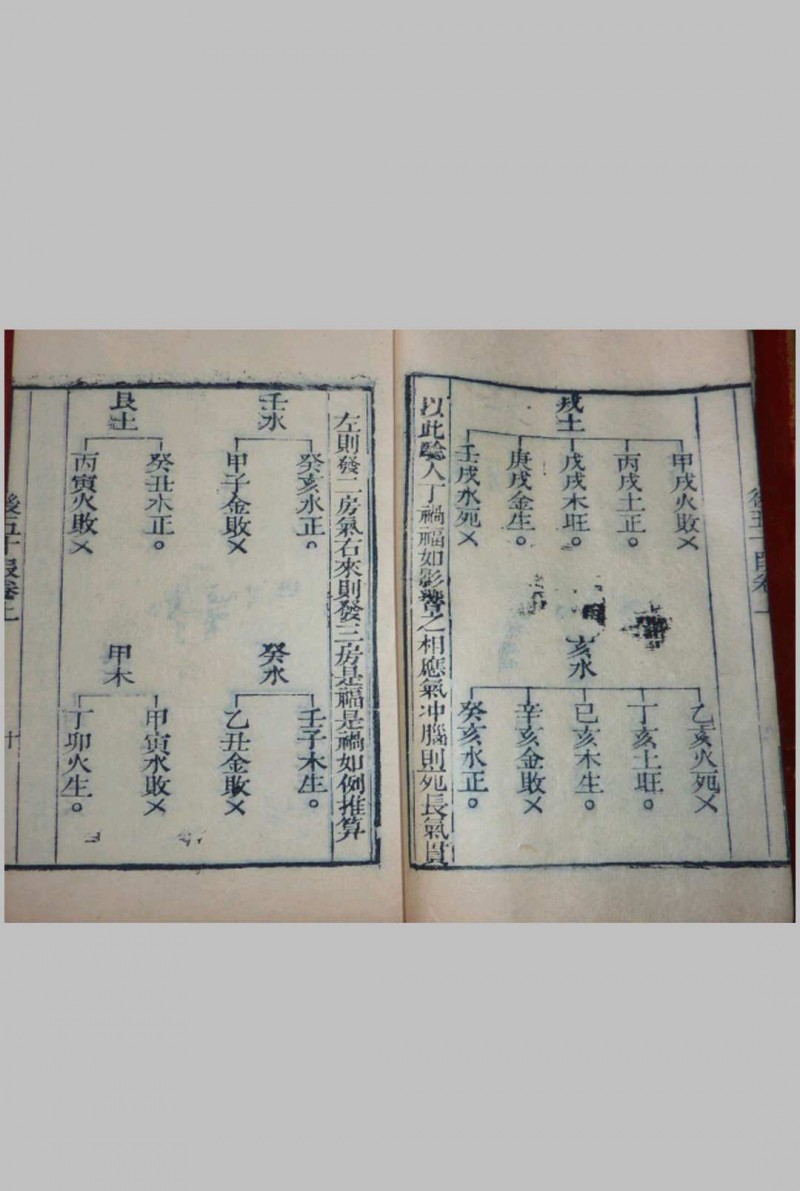 戌土
甲戌火敗×
丙戌土正。
戊戌木旺。
庚戌金生。
壬戌水𣦸×
亥水
乙亥火𣦸×
丁亥土旺。
己亥木生。
辛亥金敗×
癸亥水正。
以此驗人丁禍福如影響之相應氣冲腦則𣦸長氣貫
左則發二房氣右來則發三房是福是禍如例推算
壬水
癸亥水正。
甲子金敗×
癸水
壬子木生。
乙丑金敗×
艮土
癸丑木正。
丙寅火敗×
甲木
甲寅水敗×
丁卯火生。